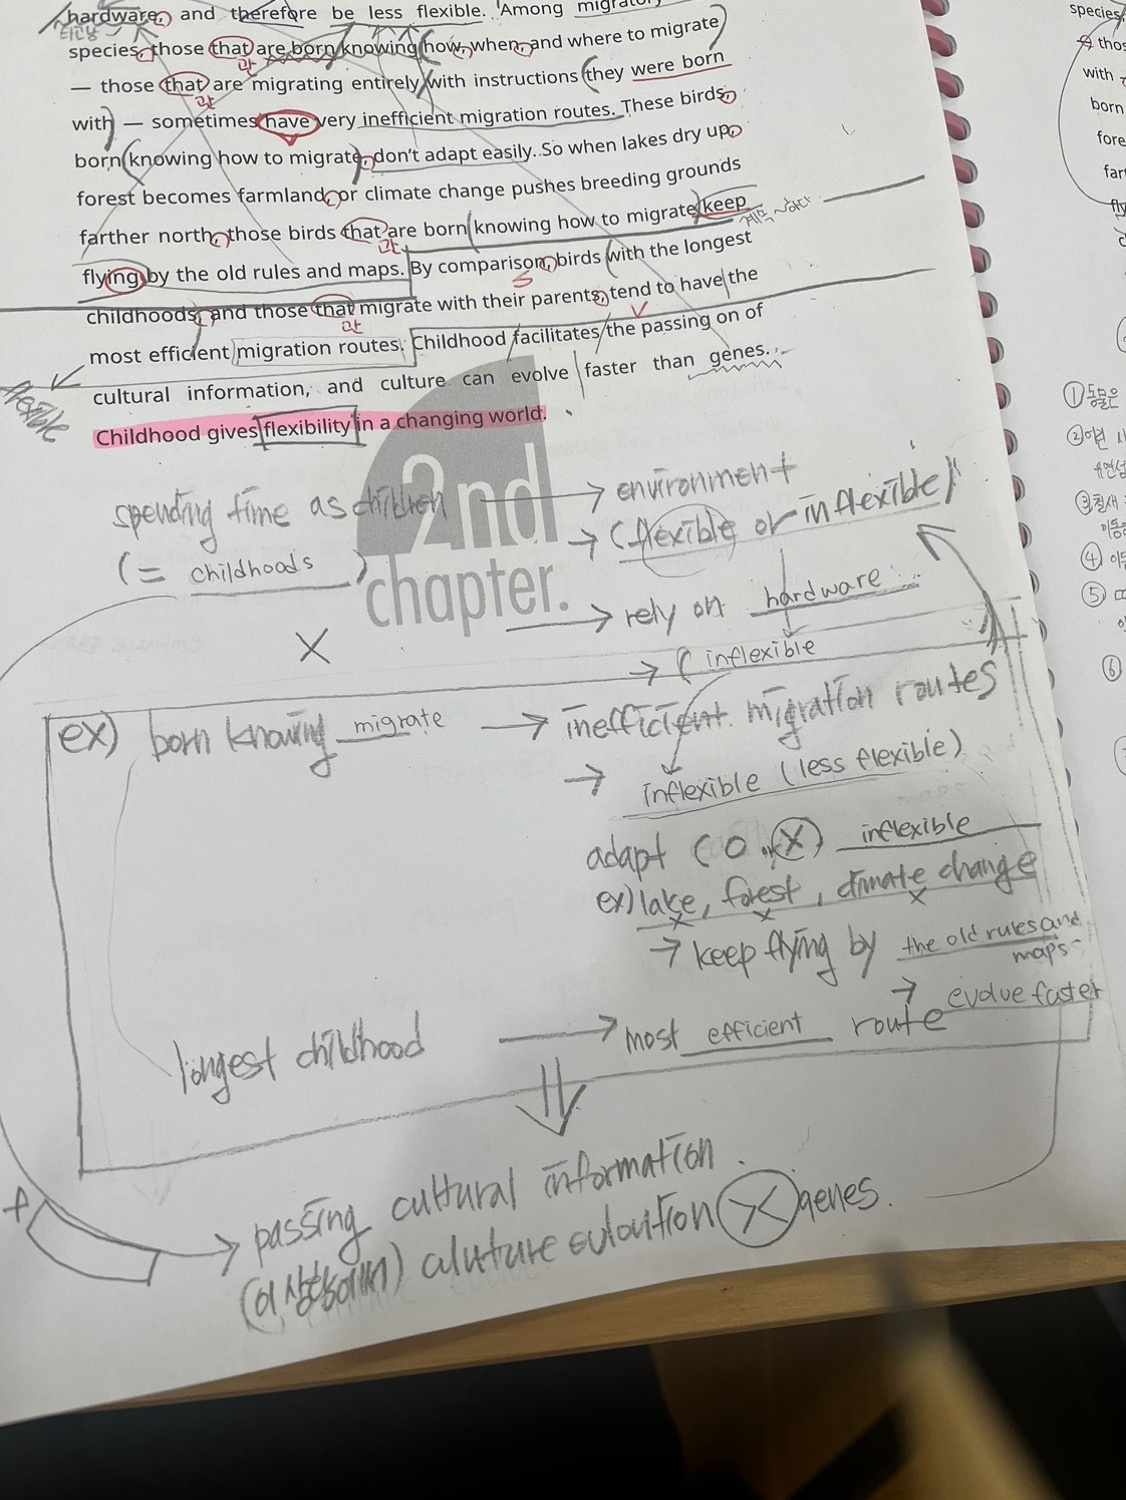 hardware, and therefore be less flexible. Among migratory
타고난
species, those that are born knowing how, when, and where to migrate
— those that are migrating entirely with instructions they were born
with — sometimes have very inefficient migration routes. These birds,
born knowing how to migrate, don't adapt easily. So when lakes dry up,
forest becomes farmland, or climate change pushes breeding grounds
farther north, those birds that are born knowing how to migrate keep
계속 ~하다
flying by the old rules and maps. By comparison, birds with the longest
S
childhoods, and those that migrate with their parents, tend to have the
most efficient migration routes. Childhood facilitates the passing on of
cultural information, and culture can evolve faster than genes.
flexible
Childhood gives flexibility in a changing world.
2nd
chapter.
spending time as children → environment
(= childhoods) → (flexible or inflexible)
→ rely on hardware
X
→ ( inflexible
ex) born knowing migrate → inefficient migration routes
→ inflexible (less flexible)
adapt (O or X) inflexible
ex) lake, forest, climate change
→ keep flying by the old rules and maps
→ evolve faster
longest childhood → most efficient route
→ passing cultural information.
culuture evloution X genes.
species,
thos
with
born
fore
far
fly
① 동물은
②어떤 사
유연성
③철새
이동
④ 이동
⑤
⑥